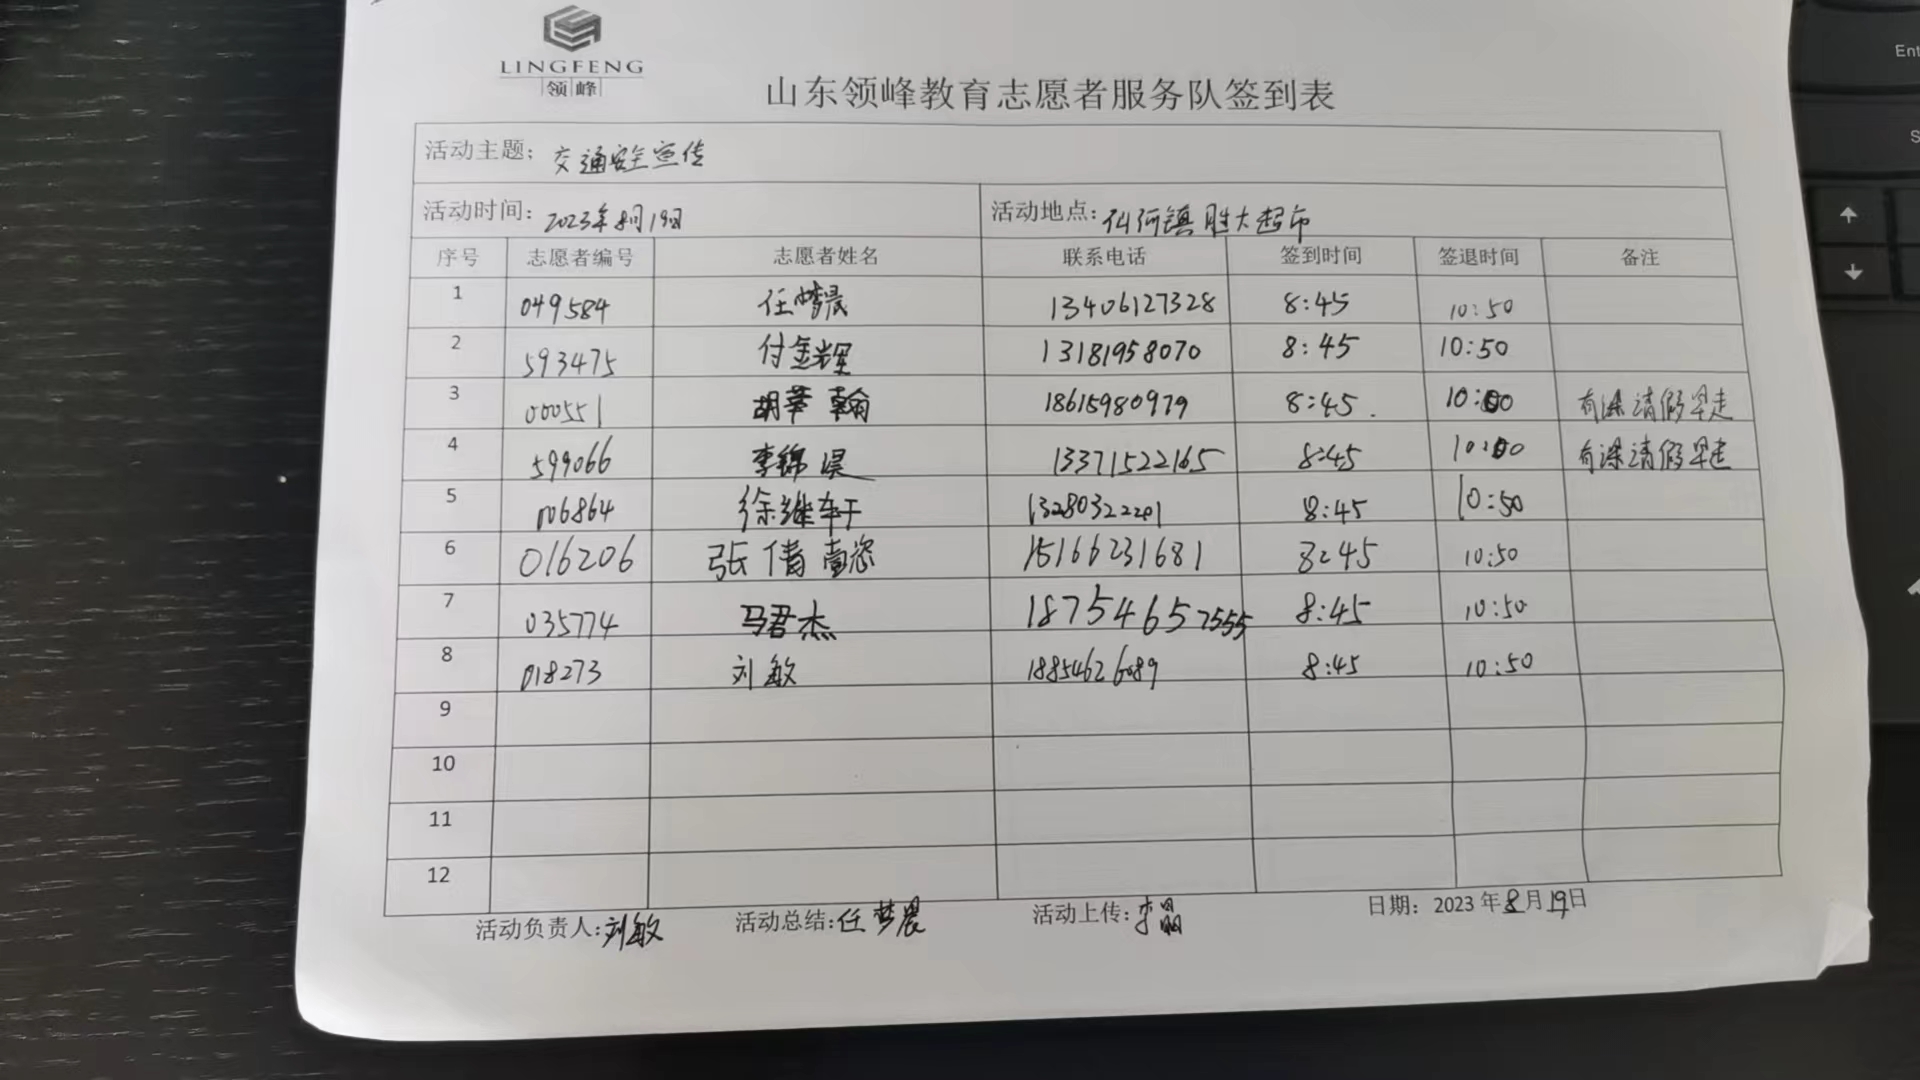 LINGFENG
领峰
山东领峰教育志愿者服务队签到表
活动主题：交通安全宣传
活动时间：2023年8月19日 活动地点：仙河镇胜大超市
序号 志愿者编号 志愿者姓名 联系电话 签到时间 签退时间 备注
1 049584 任梦晨 13406127328 8:45 10:50
2 593475 付金辉 13181958070 8:45 10:50
3 000551 胡苹翰 18615980979 8:45. 10:00 有课请假早走
4 599066 李锦昊 13371522165 8:45 10:00 有课请假早走
5 006864 徐继轩 13280322201 8:45 10:50
6 016206 张倩懿 15166231681 8:45 10:50
7 035774 马君杰 18754657555 8:45 10:50
8 018273 刘敏 18854626089 8:45 10:50
9
10
11
12
活动负责人：刘敏 活动总结：任梦晨 活动上传：李晶 日期：2023年8月19日
Ent
S